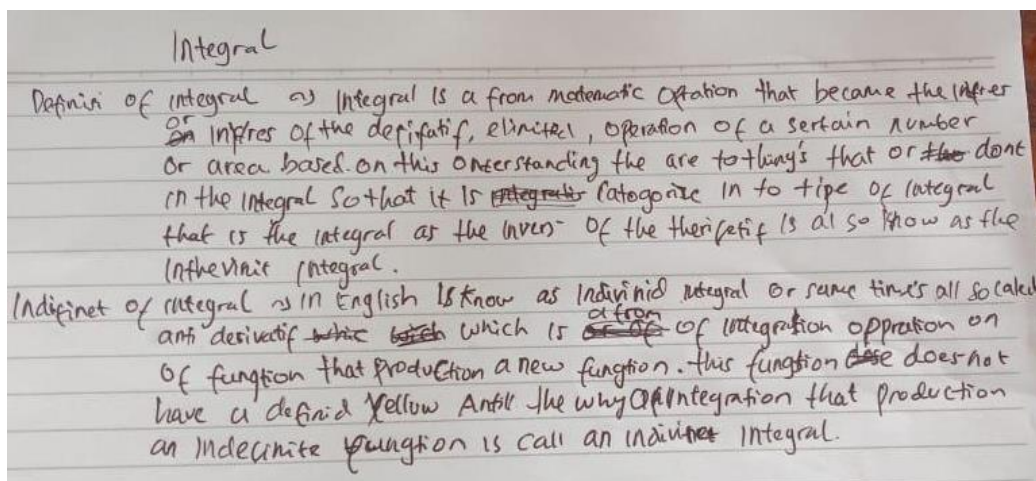 Integral
Definisi of integral as Integral is a from matematic opration that became the infres
or infres of the derifatif, elimited, operation of a sertain number
or area based on this onterstanding the are to thing's that or dont
in the integral so that it is Catogorize in to tipe of integral
that is the integral as the invers of the therifetif is al so know as the
Inthevinit integral.
Indifinet of integral as in English is know as Indivinid integral or same time's all so caled
anti derivatif which is a from of integration oppration on
of fungtion that production a new fungtion. this fungtion does not
have a definid Yellow Antil the why of integration that production
an indecinite fungtion is call an indivinet integral.